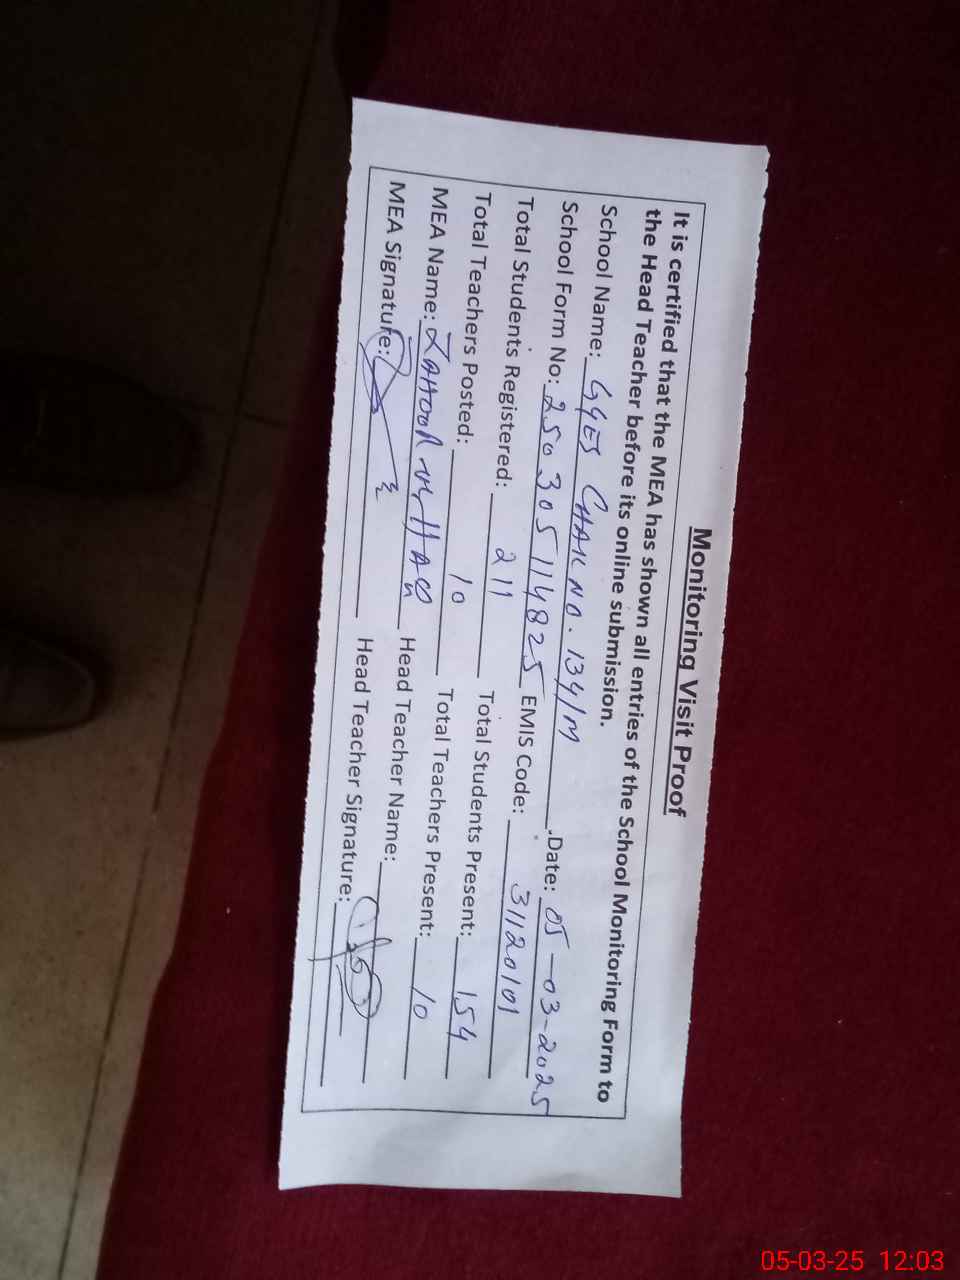 Monitoring Visit Proof
It is certified that the MEA has shown all entries of the School Monitoring Form to
the Head Teacher before its online submission.
School Name: GGES CHAK NO. 134/M .Date: 05-03-2025
School Form No: 250305114825 EMIS Code: 31120101
Total Students Registered: 211 Total Students Present: 154
Total Teachers Posted: 10 Total Teachers Present: 10
MEA Name: ZAHOOR ul HAQ Head Teacher Name:
MEA Signature: Head Teacher Signature:
05-03-25 12:03